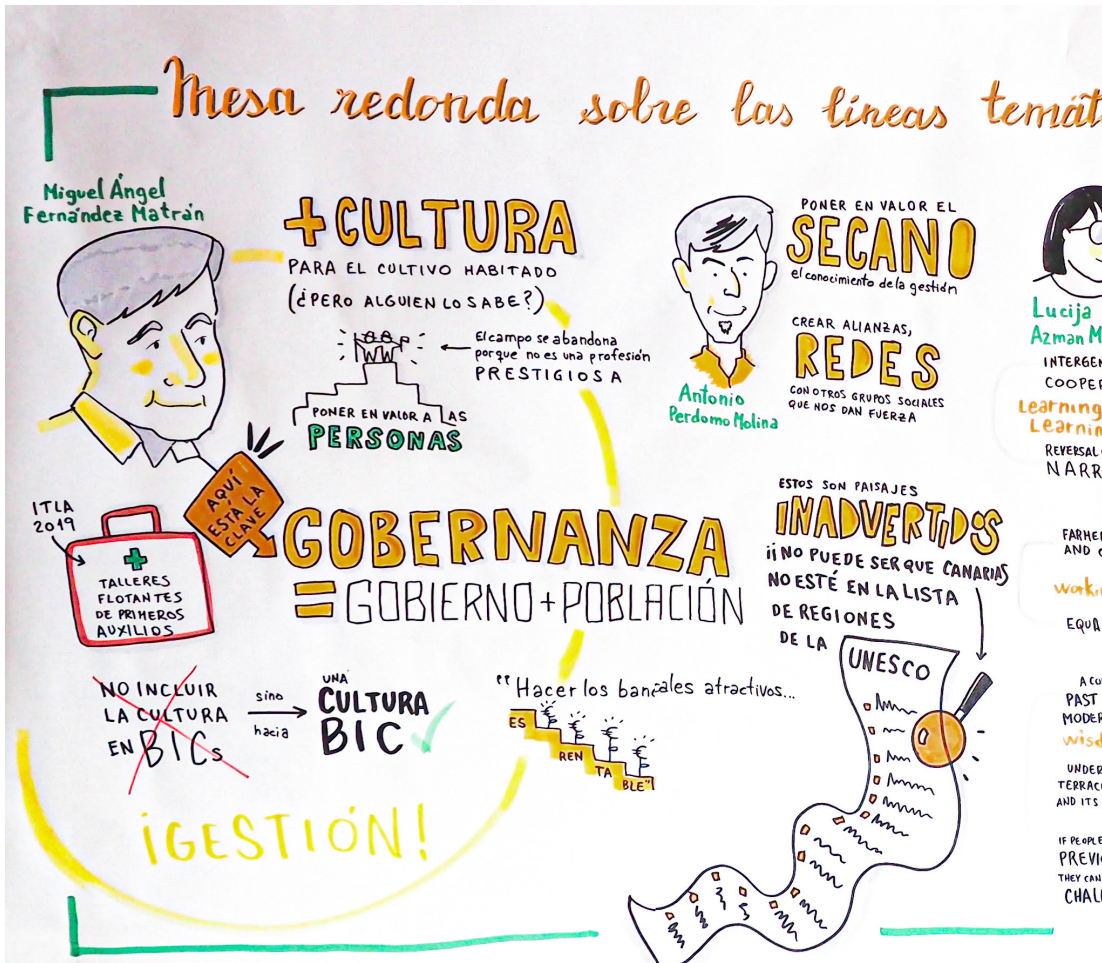 Mesa redonda sobre las líneas temát
Miguel Ángel
Fernández Matrán
+CULTURA
PARA EL CULTIVO HABITADO
(¿PERO ALGUIEN LO SABE?)
El campo se abandona
porque no es una profesión
PRESTIGIOSA
PONER EN VALOR A LAS
PERSONAS
AQUÍ
ESTÁ LA
CLAVE
ITLA
2019
TALLERES
FLOTANTES
DE PRIMEROS
AUXILIOS
GOBERNANZA
=GOBIERNO+POBLACIÓN
NO INCLUIR
LA CULTURA
EN BICs
sino
hacia
UNA
CULTURA
BIC
¡GESTIÓN!
"Hacer los bancales atractivos...
ES
REN
TA
BLE"
Antonio
Perdomo Molina
PONER EN VALOR EL
SECANO
el conocimiento de la gestión
CREAR ALIANZAS,
REDES
CON OTROS GRUPOS SOCIALES
QUE NOS DAN FUERZA
ESTOS SON PAISAJES
INADVERTIDOS
¡¡NO PUEDE SER QUE CANARIAS
NO ESTÉ EN LA LISTA
DE REGIONES
DE LA
UNESCO
Lucija
Azman M
INTERGEN
COOPER
Learning
Learnin
REVERSAL
NARR
FARMER
AND
worki
EQUA
A CO
PAST
MODER
wisd
UNDER
TERRAC
AND ITS
IF PEOPLE
PREVI
THEY CAN
CHALL